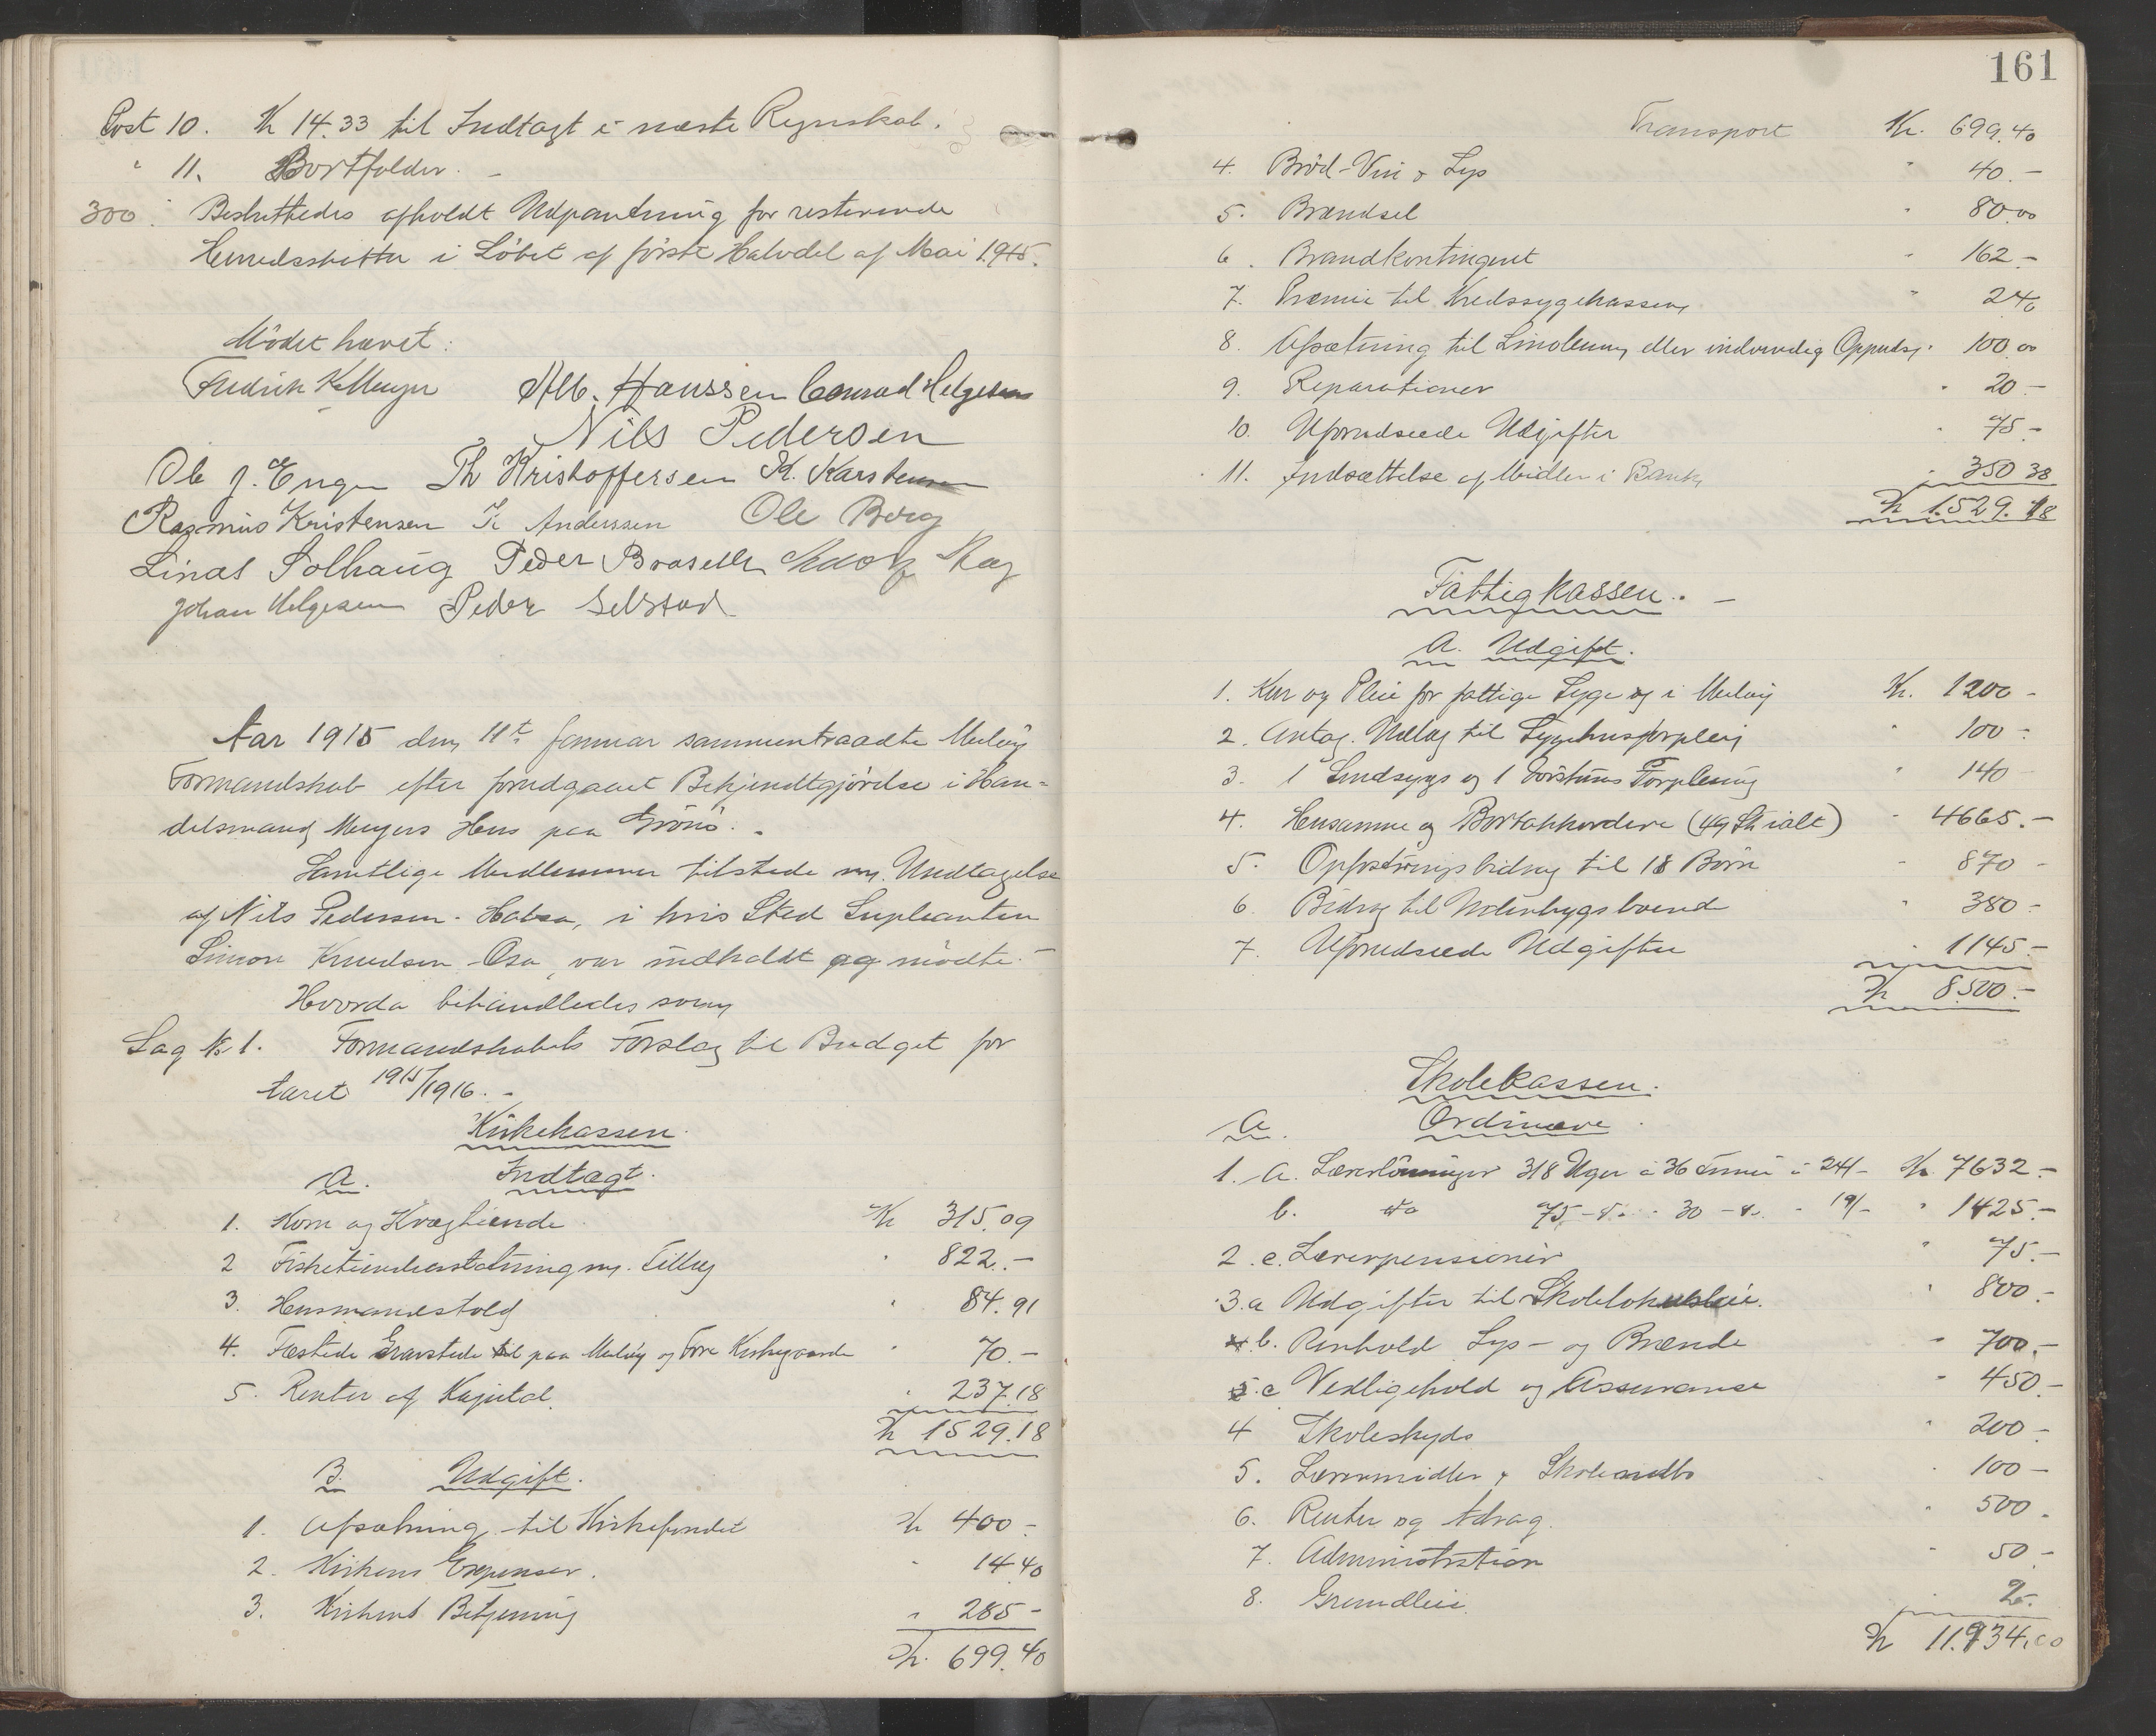 Post 10. Kr 14.33 til Indtagt i næste Regnskab.
" 11. Bortfalder. -
300. Besluttedes afholdt Udpantning for resterende
Herredsskatter i Løbet af første Halvdel af Mai 1915.
Mødet hævet:
Fredrik K. Meyer Alb. Hanssen Conrad Helgesen
Nils Pedersen
Ole J. Engen Th Kristoffersen K. Karstensen
Rasmus Kristensen Anderssen Ole Borg
Linas Solhaug Peder
Johan Helgesen Peder Selstad
Aar 1915 den 11te Januar sammentraadte Meløy
Formandskab efter forudgaaet Bekjendtgjørelse i Han-
delsmand Meyers Hus paa Grönö. -
Samtlige Medlemmer tilstede m. Undtagelse
af Nils Pedersen - Halsa, i hvis Sted Supleanten
Simon Knudsen - Osa, var indkaldt og mødte. -
Hvorda behandledes som
Sag No 1. Formandskabets Forslag til Budget for
Aaret 1915/1916. -
Kirkekassen.
A. Indtægt.
1. Korn og Kvægtiende Kr 315.09
2 Fisketiendeerstatning m. Tillæg " 822.-
3. Husmandstold " 84.91
4. Fæstede Gravstede til paa Meløy og Fore Kirkegaarde " 70.-
5. Renter af Kapital " 237.18
Kr 1529.18
B. Udgift.
1. Afsætning til Kirkefondet Kr 400-
2. Kirkens Expenser. " 14.40
3. Kirkens Betjening " 285-
Kr. 699.40
161
Transport Kr. 699.40
4. Brød-Vin & Lys " 40.-
5. Brændsel " 80.00
6. Brandkontingent " 162-
7. Præmie til Kredssygekassen " 2.40
8. Afsætning til Linoleum eller indvendig Oppuds. " 100.00
9. Reparationer " 20-
10. Uforudseede Udgifter " 75-
11. Indsættelse af Midler i Bank " 350 38
Kr 1.529.18
Fattigkassen. -
A. Udgift.
1. Kur og Pleie for fattige Syge i Meløy Kr. 1200-
2. Antag. Udlæg til Sygehusforpleig " 100-
3. 1 Sindsygs og 1 Forpleining " 140
4. Husarme og Bortakkordere (49 Stk ialt) " 4665.-
5. Opfostringsbidrag til 18 Børn " 870-
6. Bidrag til Udenbygsboende " 380-
7. Uforudseede Udgifter " 1145-
Kr 8500.-
Skolekassen.
A. Ordinære.
1. a. Lærerlønninger 318 Uger à 36 Timer à 24/- Kr. 7632-
b. do 75 - do - 30 - do - 19/- " 1425.-
2. e. Lærerpensioner " 75.-
3. a Udgifter til Skolelokalsleie. " 800-
b. Renhold Lys- og Brænde " 700.-
c Vedligehold og Assuranse " 450.-
4 Skoleskyds " 200-
5. Læremidler & " 100-
6. Renter og Adrag. " 500.
7. Administration " 50-
8. Grundleie. " 2-
Kr 11.934.00